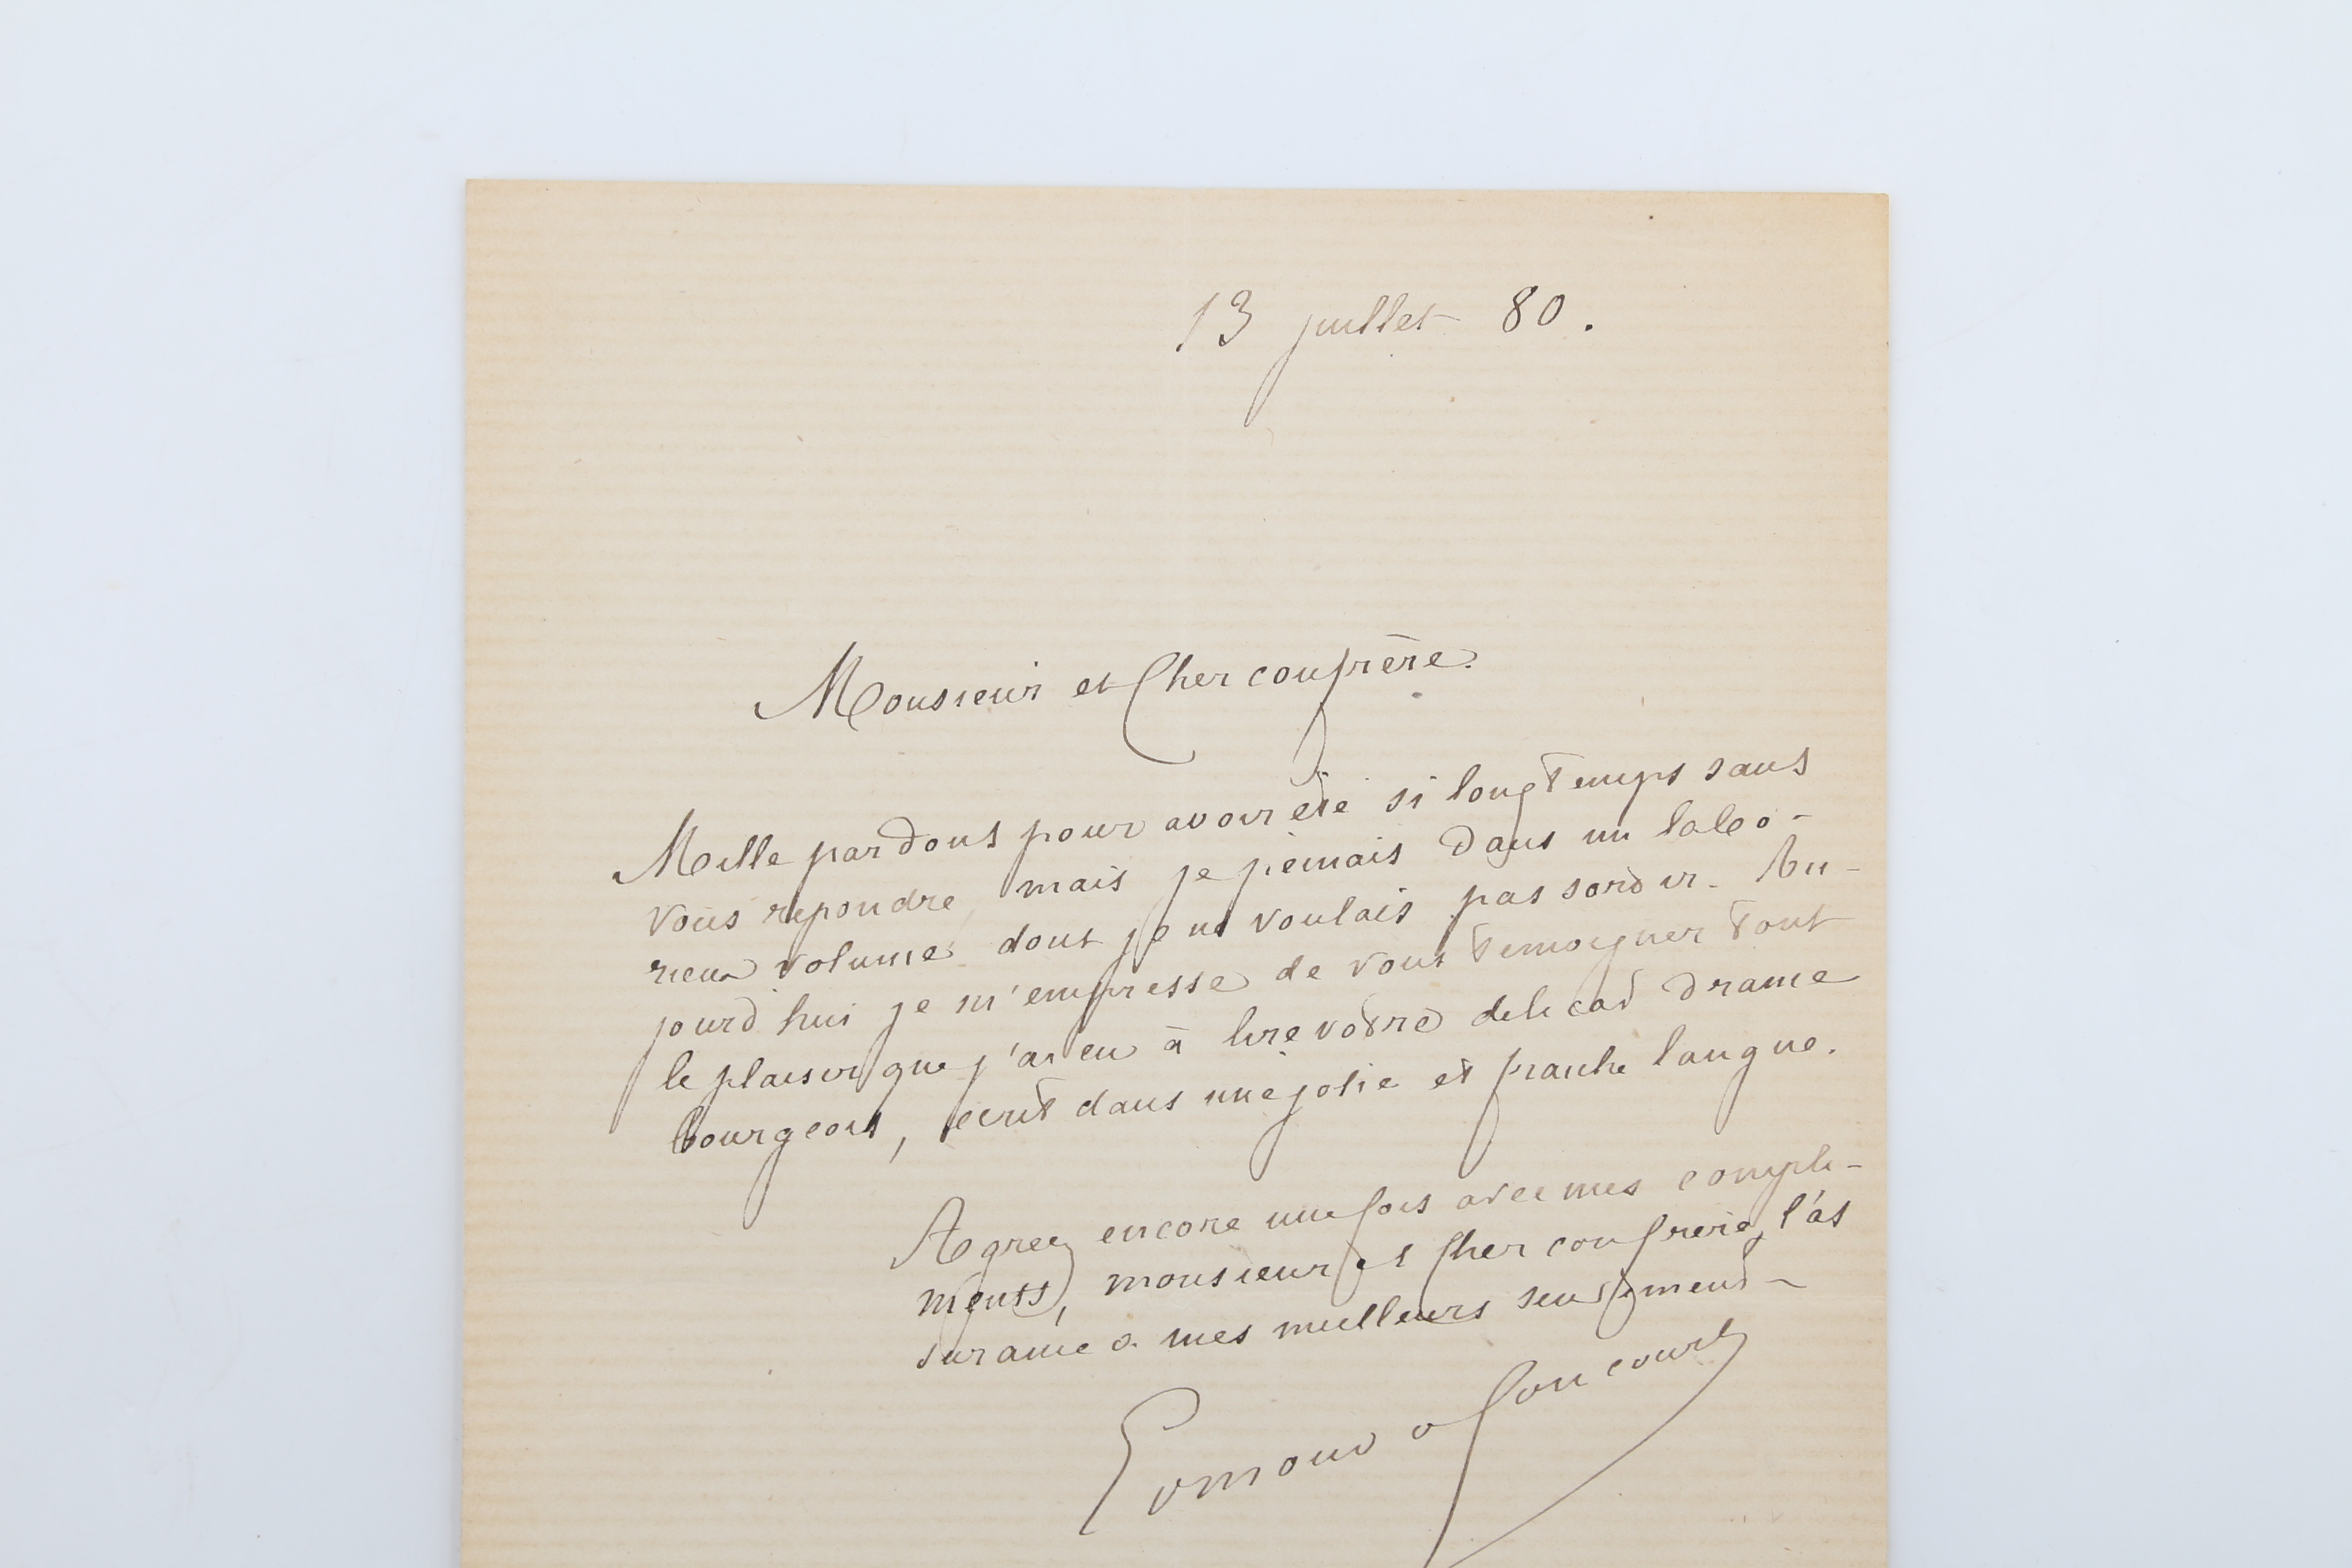 13 juillet 80.
Monsieur et Cher confrère.
Mille pardons pour avoir été si longtemps sans
vous repondre, mais je piemais dans un labo-
rieux volume dont je ne voulais pas sortir. Au-
jourd'hui je m'empresse de vous temoigner tout
le plaisir que j'ai eu à lire votre delicat drame
bourgeois, ecrit dans une jolie et franche langue.
Agreez encore une fois avec mes compli-
ments, monsieur et cher confrere, l'as
surance de mes meilleurs sentiments
Edmond de Goncourt